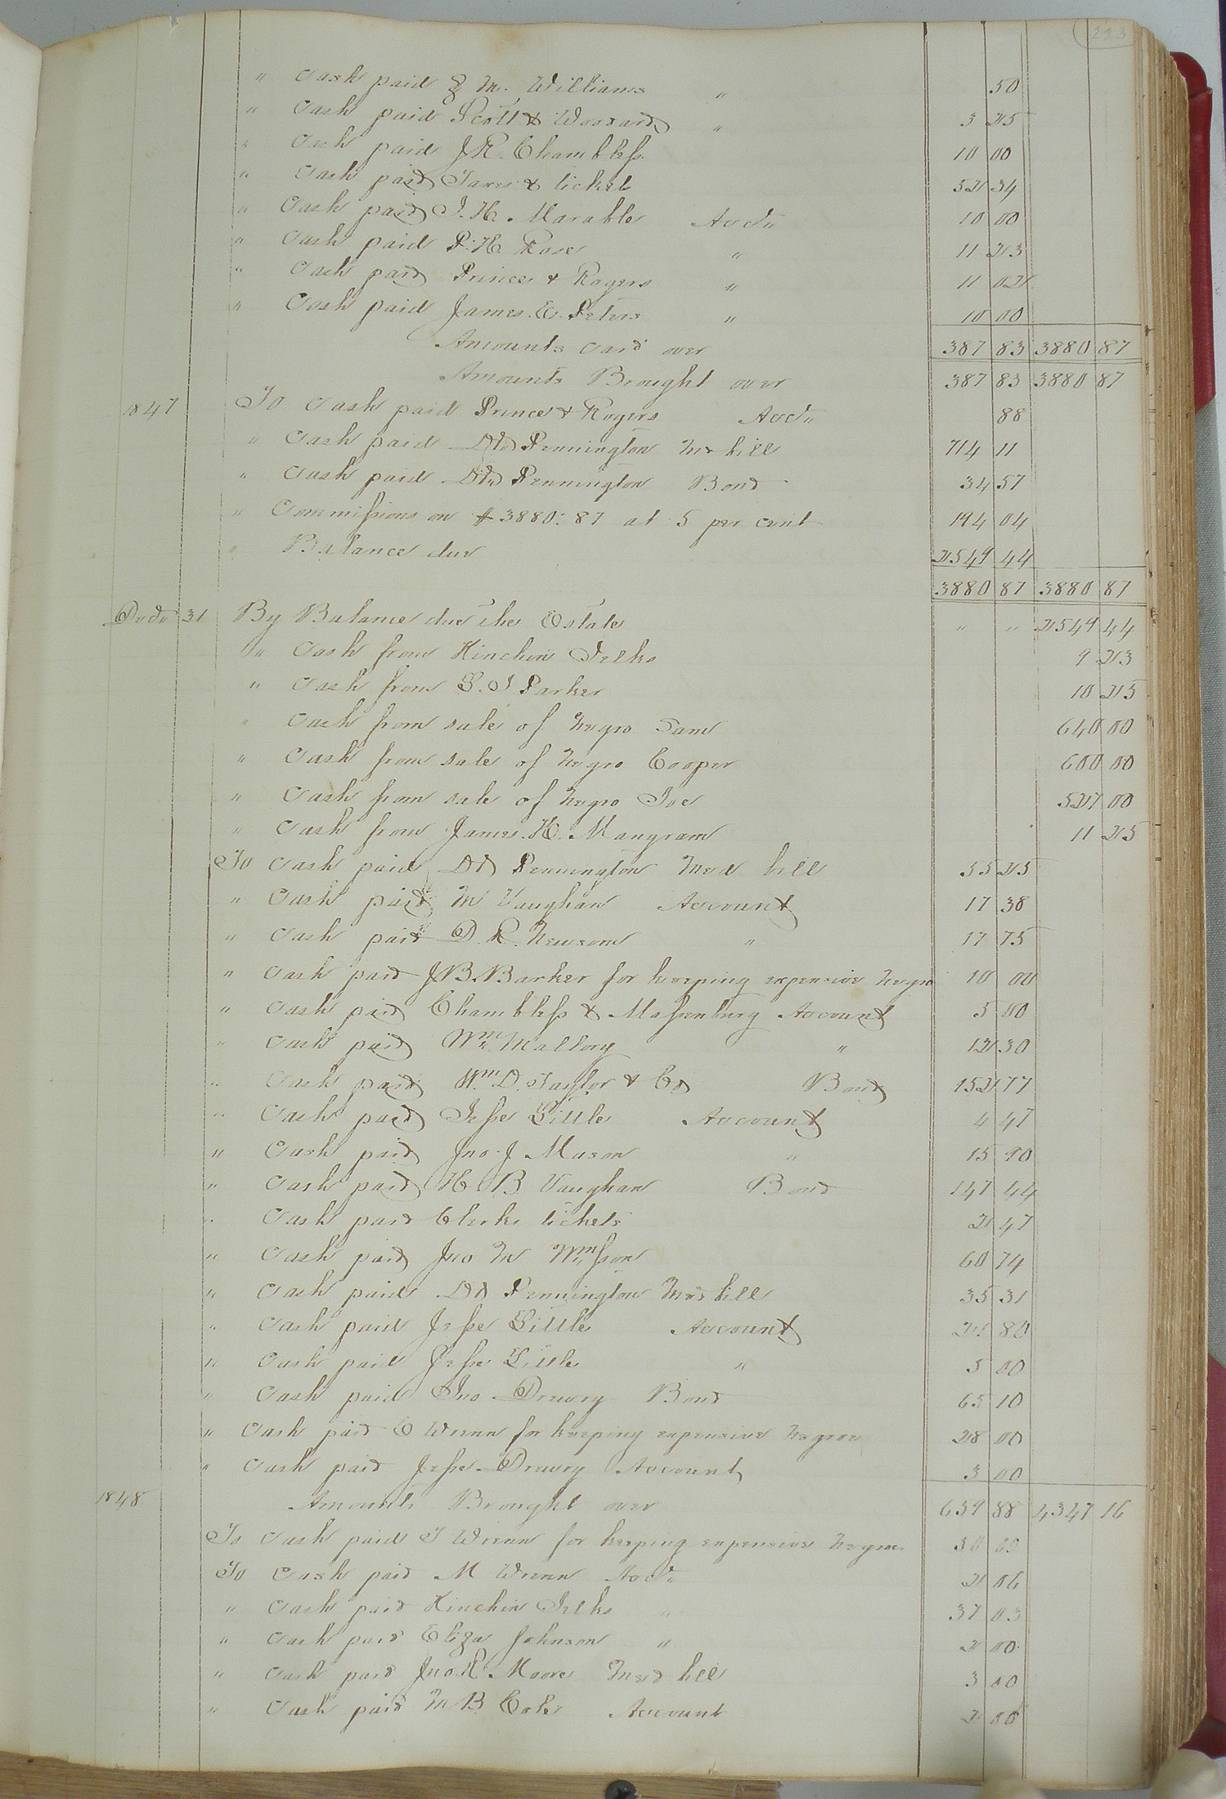 223
" Cash paid J. M. Williams " 50
" Cash paid Scott & Woodard " 3 25
" Cash paid J. R. Chambless 10 00
" Cash paid Taxes & tickets 52 34
" Cash paid J. H. Marable Acct. 10 00
" Cash paid P. H. Rose " 11 23
" Cash paid Prince & Rogers " 11 02
" Cash paid James E. Peters " 10 00
Amounts card over 387 83 3880 87
Amounts Brought over 387 83 3880 87
1847 To Cash paid Prince & Rogers Acct. 88
" Cash paid Dr. Pennington Md bill 714 11
" Cash paid Dr. Pennington Bond 34 57
" Commissions on $3880:87 at 5 per cent 194 04
" Balance due 2549 44
3880 87 3880 87
31 By Balance due the Estate " " 2549 44
" Cash from Hinchin Jelks 9 23
" Cash from S. J Parker 10 25
" Cash from sale of Negro Sam 640 00
" Cash from sale of Negro Cooper 600 00
" Cash from sale of Negro Joe 527 00
" Cash from James. H. Mangram 11 25
To Cash paid Dr Pennington Med bill 55 25
" Cash paid M Vaughan Account 17 38
" Cash paid D. R. Newsom " 17 75
" Cash paid J B. Barker for keeping expensive Negro 10 00
" Cash paid Chambless & Massenburg Account 5 00
" Cash paid Wm Mallory " 12 30
" Cash paid Wm D. Taylor & Co Bond 152 77
" Cash paid Jesse Little Account 4 47
" Cash paid Jno. J Mason " 15 90
" Cash paid H B Vaughan Bond 147 44
" Cash paid Clerks tickets 2 47
" Cash paid Jno M Wmson 60 74
" Cash paid Dr Pennington Med bill 35 31
" Cash paid Jesse Little Account 25 80
" Cash paid Jesse Little " 5 00
" Cash paid Jno Drewry Bond 65 10
" Cash paid C Wrenn for keeping expensive negroes 28 00
" Cash paid Jesse Drewry Account 3 00
1848 Amounts Brought over 639 88 4347 16
To Cash paid J Wrenn for keeping expensive Negroes 30 09
To Cash paid M Wrenn Acct. 2 06
" Cash paid Hinchin Jelks " 37 03
" Cash paid Eliza Johnson " 2 00
" Cash paid Jno R. Moore Med bill 3 00
" Cash paid M B Cole Account 2 00